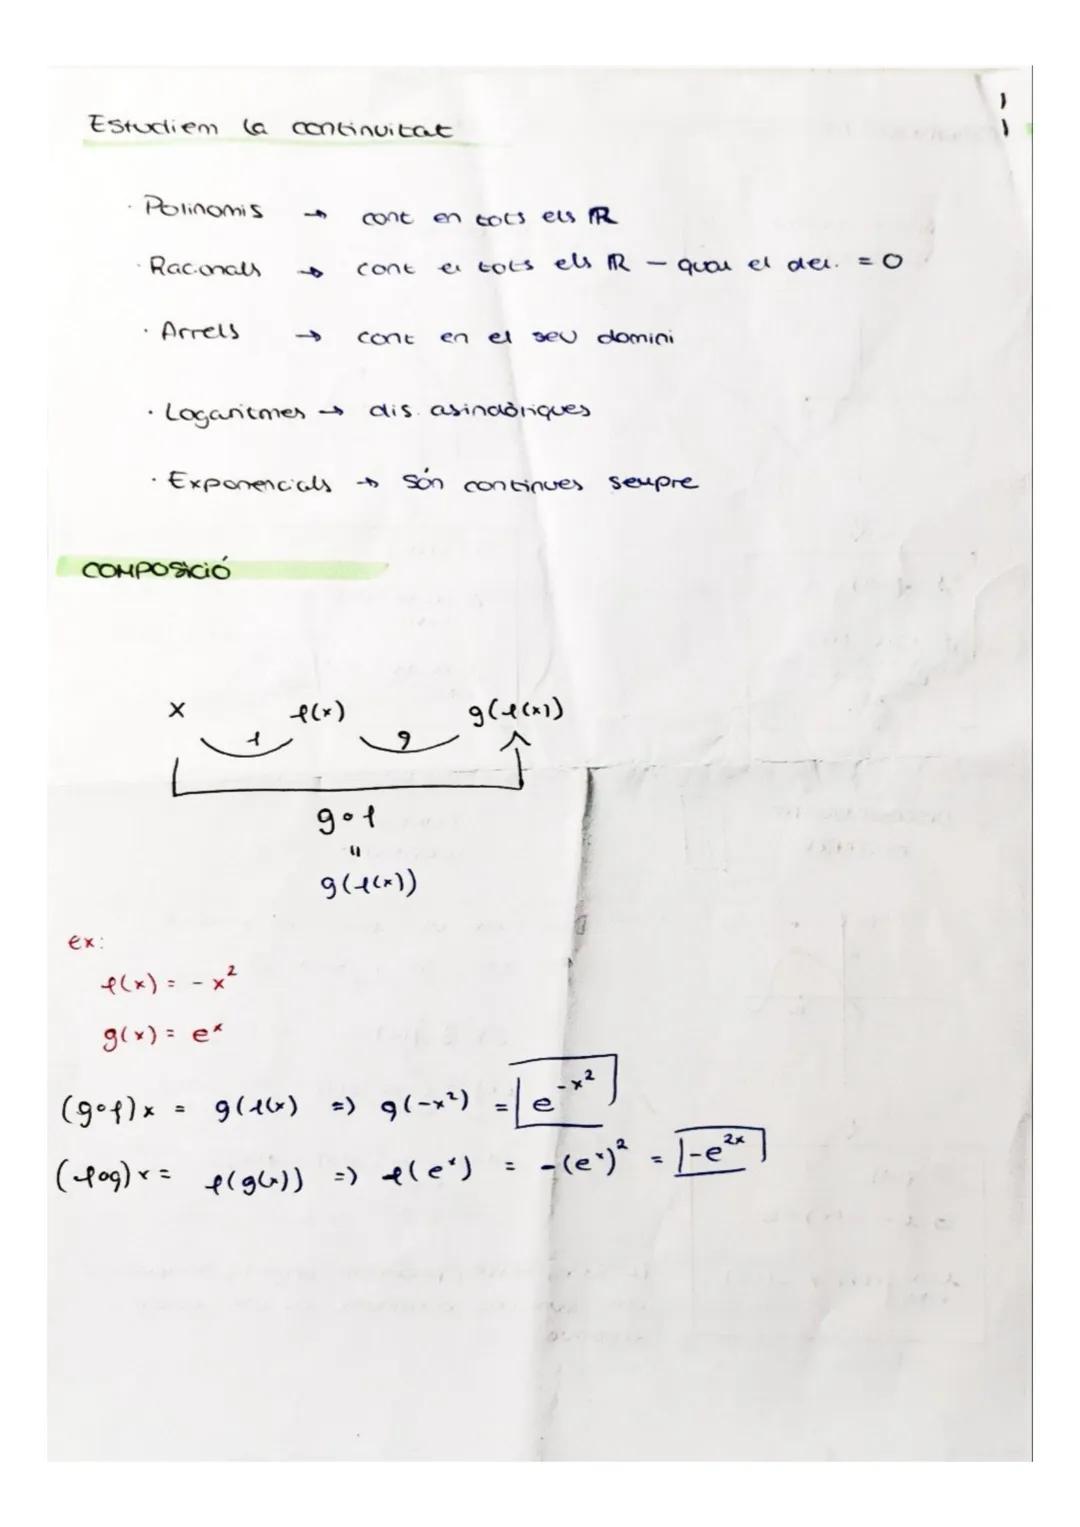 Estudiem la continuitat
· Polinomis → cont en tots els ℝ
· Racionals → cont en tots els ℝ - quan el den. = 0
· Arrels → cont en el seu domini
· Logaritmes → dis. asimtòtiques
· Exponencials → Són contínues sempre
COMPOSICIÓ
x f(x) g(f(x))
f g
g∘f
"
g(f(x))
ex:
f(x) = -x²
g(x) = eˣ
(g∘f)x = g(f(x) => g(-x²) = e^-x²
(fog)x = f(g(x)) => f(eˣ) = -(eˣ)² = -e^2x